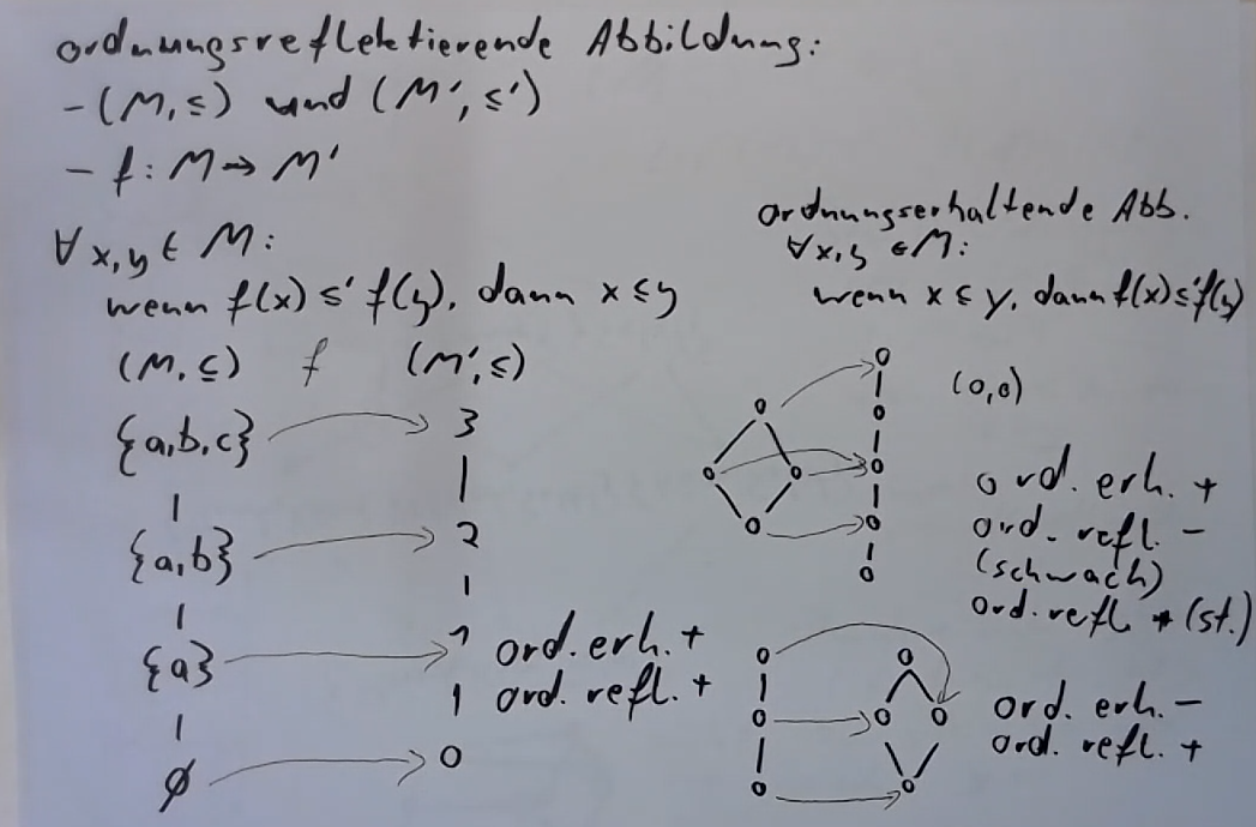 ordnungsreflektierende Abbildung:
- (M,≤) und (M',≤')
- f: M → M'
∀ x,y ∈ M:
wenn f(x) ≤' f(y), dann x ≤ y
ordnungserhaltende Abb.
∀ x,y ∈ M:
wenn x ≤ y, dann f(x) ≤' f(y)
(M,⊆) f (M',≤)
{a,b,c} 3
{a,b} 2
{a} 1
∅ 0
ord. erh. +
ord. refl. +
(0,0)
ord. erh. +
ord. refl. -
(schwach)
ord. refl. + (st.)
ord. erh. -
ord. refl. +